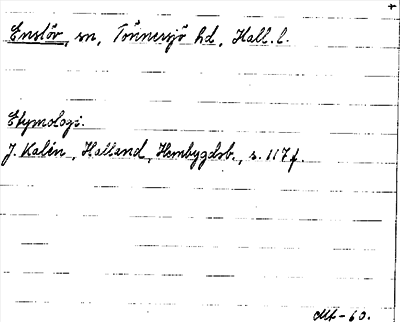 Enslöv, sn, Tönnersjö hd, Hall. l.
Etymologi.
J. Kalén, Halland, Hembygdsb., s. 117 f.
-60.